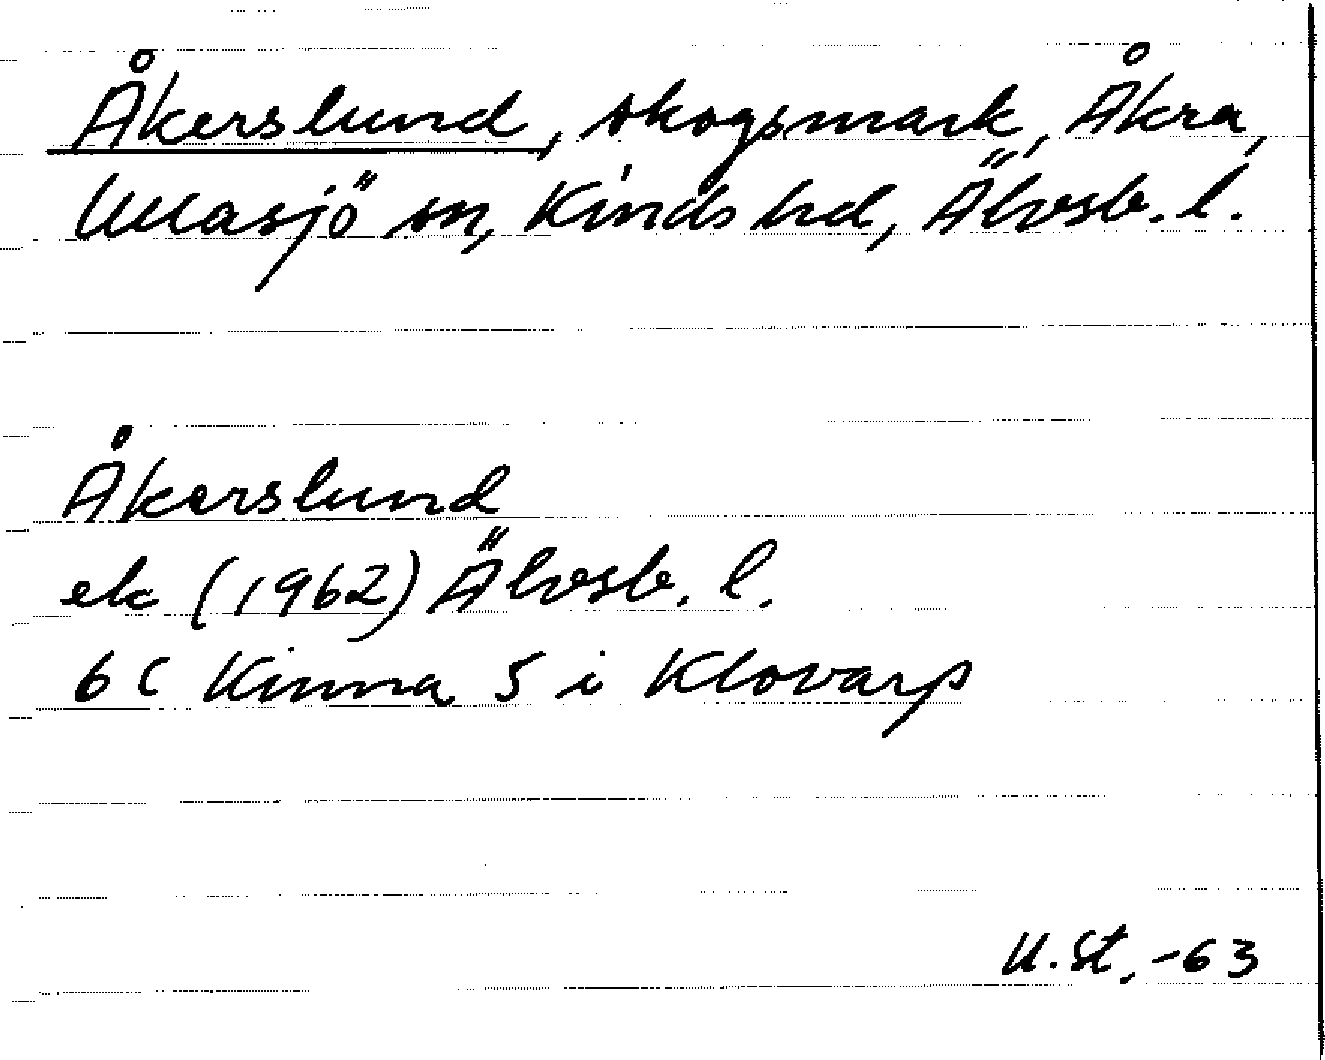 Åkerslund, skogsmark, Åkra,
Ullasjö sn, Kinds hd, Älvsb. l.
Åkerslund
ek (1962) Älvsb. l.
6C Kinna 5 i Klovarp
U.St. -63